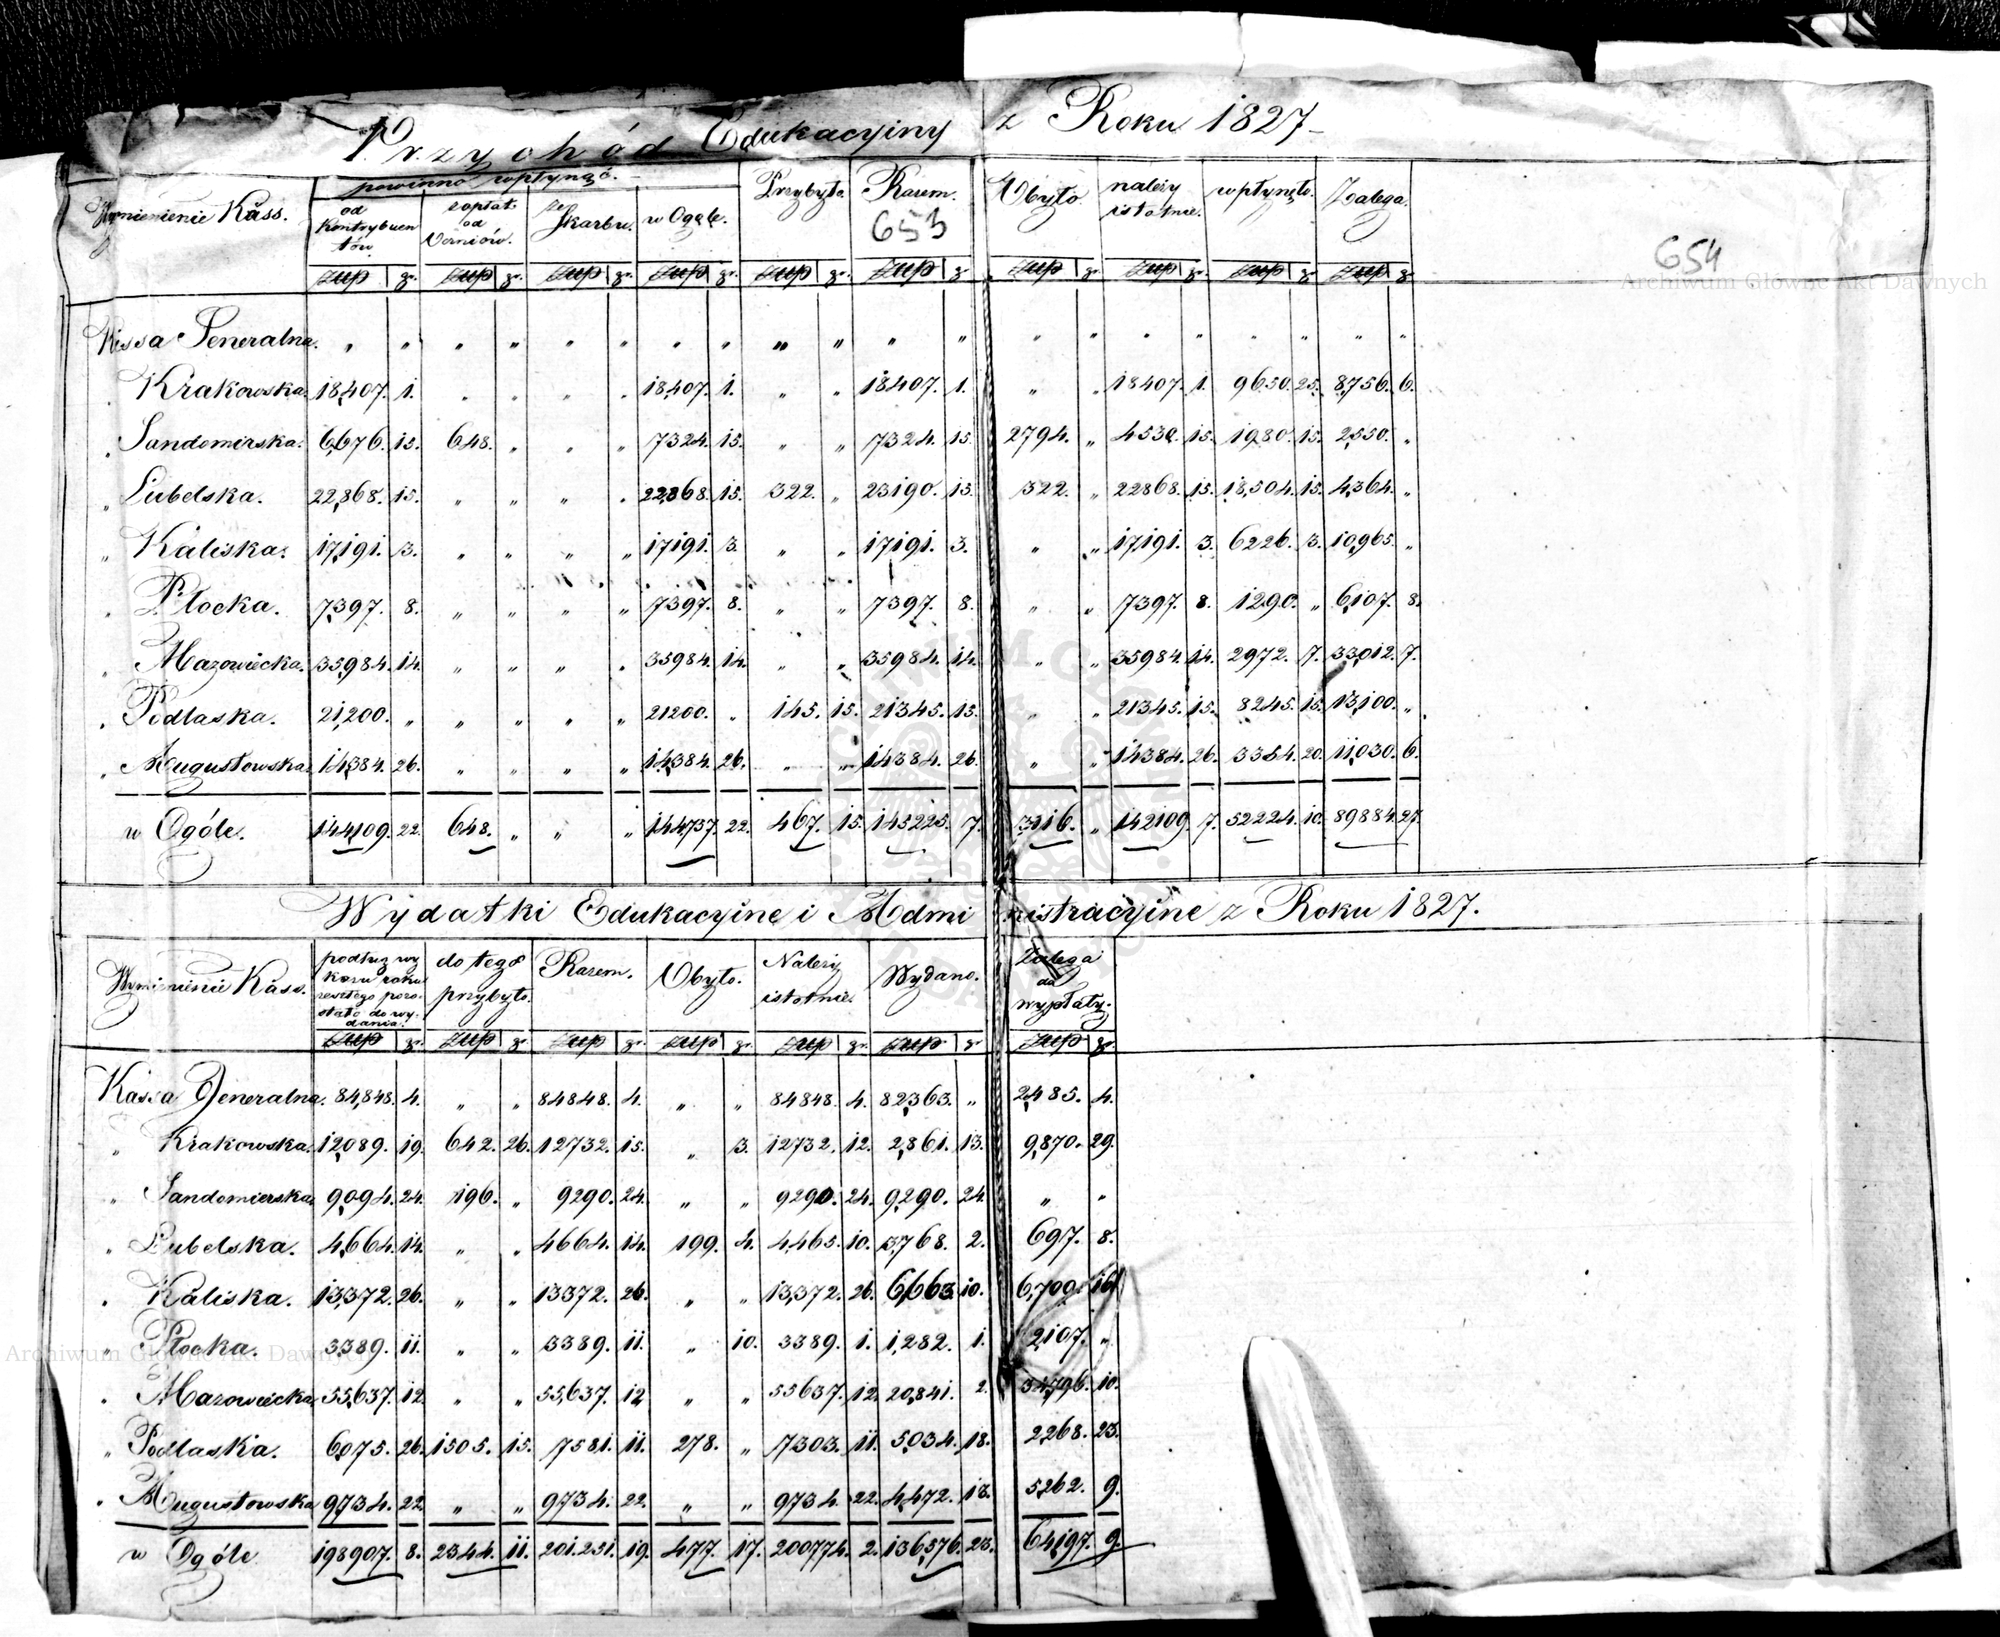 Przychód Edukacyiny z Roku 1827
Wymienienie Kass. powinno wpłynąć. Przybyło Razem. Ubyło należy istotnie. wpłynęło. Zalega.
od Kontrybuentów z opłat od Uczniów. ze Skarbu. w Ogóle.
653
654
złlp gr. złlp gr. złlp gr. złlp gr. złlp gr. złlp gr złlp gr. złlp gr. złlp gr złlp gr.
Archiwum Główne Akt Dawnych
Kassa Generalna. " " " " " " " " " " " " " " " " " " " "
" Krakowska. 18,407. 1. " " " " 18,407. 1. " " 18407. 1. " " 18407. 1. 9650. 25. 8,756. 6.
" Sandomirska. 6,676. 15. 648. " " " 7324. 15. " " 7324. 15. 2794. " 4530. 15. 1980. 15. 2,550. "
" Lubelska. 22,868. 15. " " " " 22,868. 15. 322. " 23190. 15. 322. " 22868. 15. 18,504. 15. 4,364. "
" Kaliska. 17,191. 3. " " " " 17191. 3. " " 17191. 3. " " 17,191. 3. 6226. 3. 10,965. "
" Płocka. 7,397. 8. " " " " 7397. 8. " " 7397. 8. " " 7397. 8. 1290. " 6,107. 8.
" Mazowiecka. 35,984. 14. " " " " 35984. 14. " " 35984. 14. " " 35984. 14. 2972. 7. 33,012. 7.
" Podlaska. 21,200. " " " " " 21200. " 145. 15. 21345. 15. " " 21345. 15. 8245. 15. 13,100. "
" Augustowska 14,384. 26. " " " " 14,384. 26. " " 14384. 26. " " 14384. 26. 3354. 20. 11,030. 6.
w Ogóle. 144,109. 22. 648. " " " 144,737. 22. 467. 15. 145225. 7. 3116. " 142109. 7. 52224. 10. 89884. 27.
Wydatki Edukacyine i Administracyine z Roku 1827.
Wymienienie Kass. podług wykazu roku zeszłego pozostało do wydania. do tego przybyło. Razem. Ubyło. Należy istotnie. Wydano. Zalega do wypłaty.
złlp gr. złlp gr złlp gr. złlp gr. złlp gr. złlp gr złlp gr
Kassa Generalna. 84,848. 4. " " 84848. 4. " " 84848. 4. 82,363. " 2,485. 4.
" Krakowska. 12,089. 19. 642. 26. 12732. 15. " 3. 12732. 12. 2,861. 13. 9,870. 29.
" Sandomierska. 9,094. 24. 196. " 9290. 24. " " 9290. 24. 9,290. 24. " "
" Lubelska. 4,664. 14. " " 4664. 14. 199. 4. 4,465. 10. 3,768. 2. 697. 8.
" Kaliska. 13,372. 26. " " 13372. 26. " " 13,372. 26. 6,663. 10. 6,709. 16.
" Płocka. 3,389. 11. " " 3389. 11. " 10. 3389. 1. 1,282. 1. 2,107. "
Archiwum Główne Akt Dawnych
" Mazowiecka. 55,637. 12. " " 55,637. 12. " " 55637. 12. 20,841. 2. 34,796. 10.
" Podlaska. 6,075. 26. 1505. 15. 7581. 11. 278. " 7303. 11. 5,034. 18. 2,268. 23.
" Augustowska 9,734. 22. " " 9734. 22. " " 9734. 22. 4,472. 13. 5,262. 9.
w Ogóle 198907. 8. 2344. 11. 201.251. 19. 477. 17. 200774. 2. 136,576. 23. 64,197. 9.